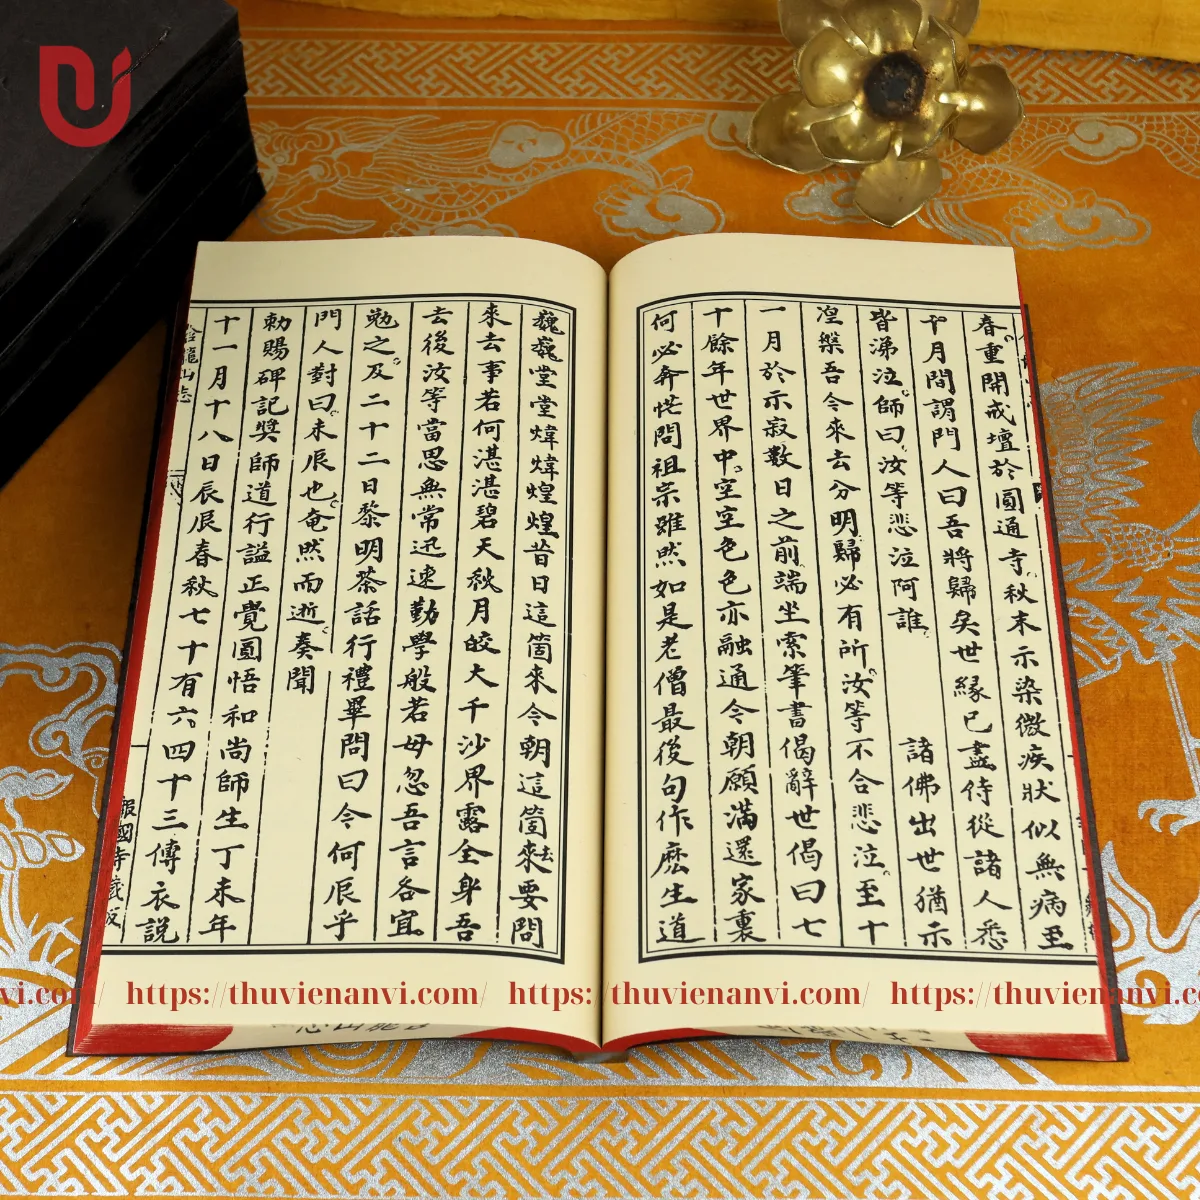 春重開戒壇於圓通寺秋末示染微疾狀似無病至
十月間謂門人曰吾將歸矣世緣已盡侍從諸人悉
皆涕泣師曰汝等悲泣阿誰 諸佛出世猶示
涅槃吾今來去分明歸必有所汝等不合悲泣至十
一月於示寂數日之前端坐索筆書偈辭世偈曰七
十餘年世界中空空色色亦融通今朝願滿還家裏
何必奔忙問祖宗雖然如是老僧最後句作麽生道
巍巍堂堂煒煒煌煌昔日這箇來今朝這箇來去要問
來去事若何湛湛碧天秋月皎大千沙界露全身吾
去後汝等當思無常迅速勤學般若毋忽吾言各宜
勉之及二十二日黎明茶話行禮畢問曰今何辰乎
門人對曰未辰也奄然而逝奏聞
勅賜碑記獎師道行謚正覺圓悟和尚師生丁未年
十一月十八日辰辰春秋七十有六四十三傳衣說
報國寺藏板
https://thuvienanvi.com/ https://thuvienanvi.com/ https://thuvienanvi.com/